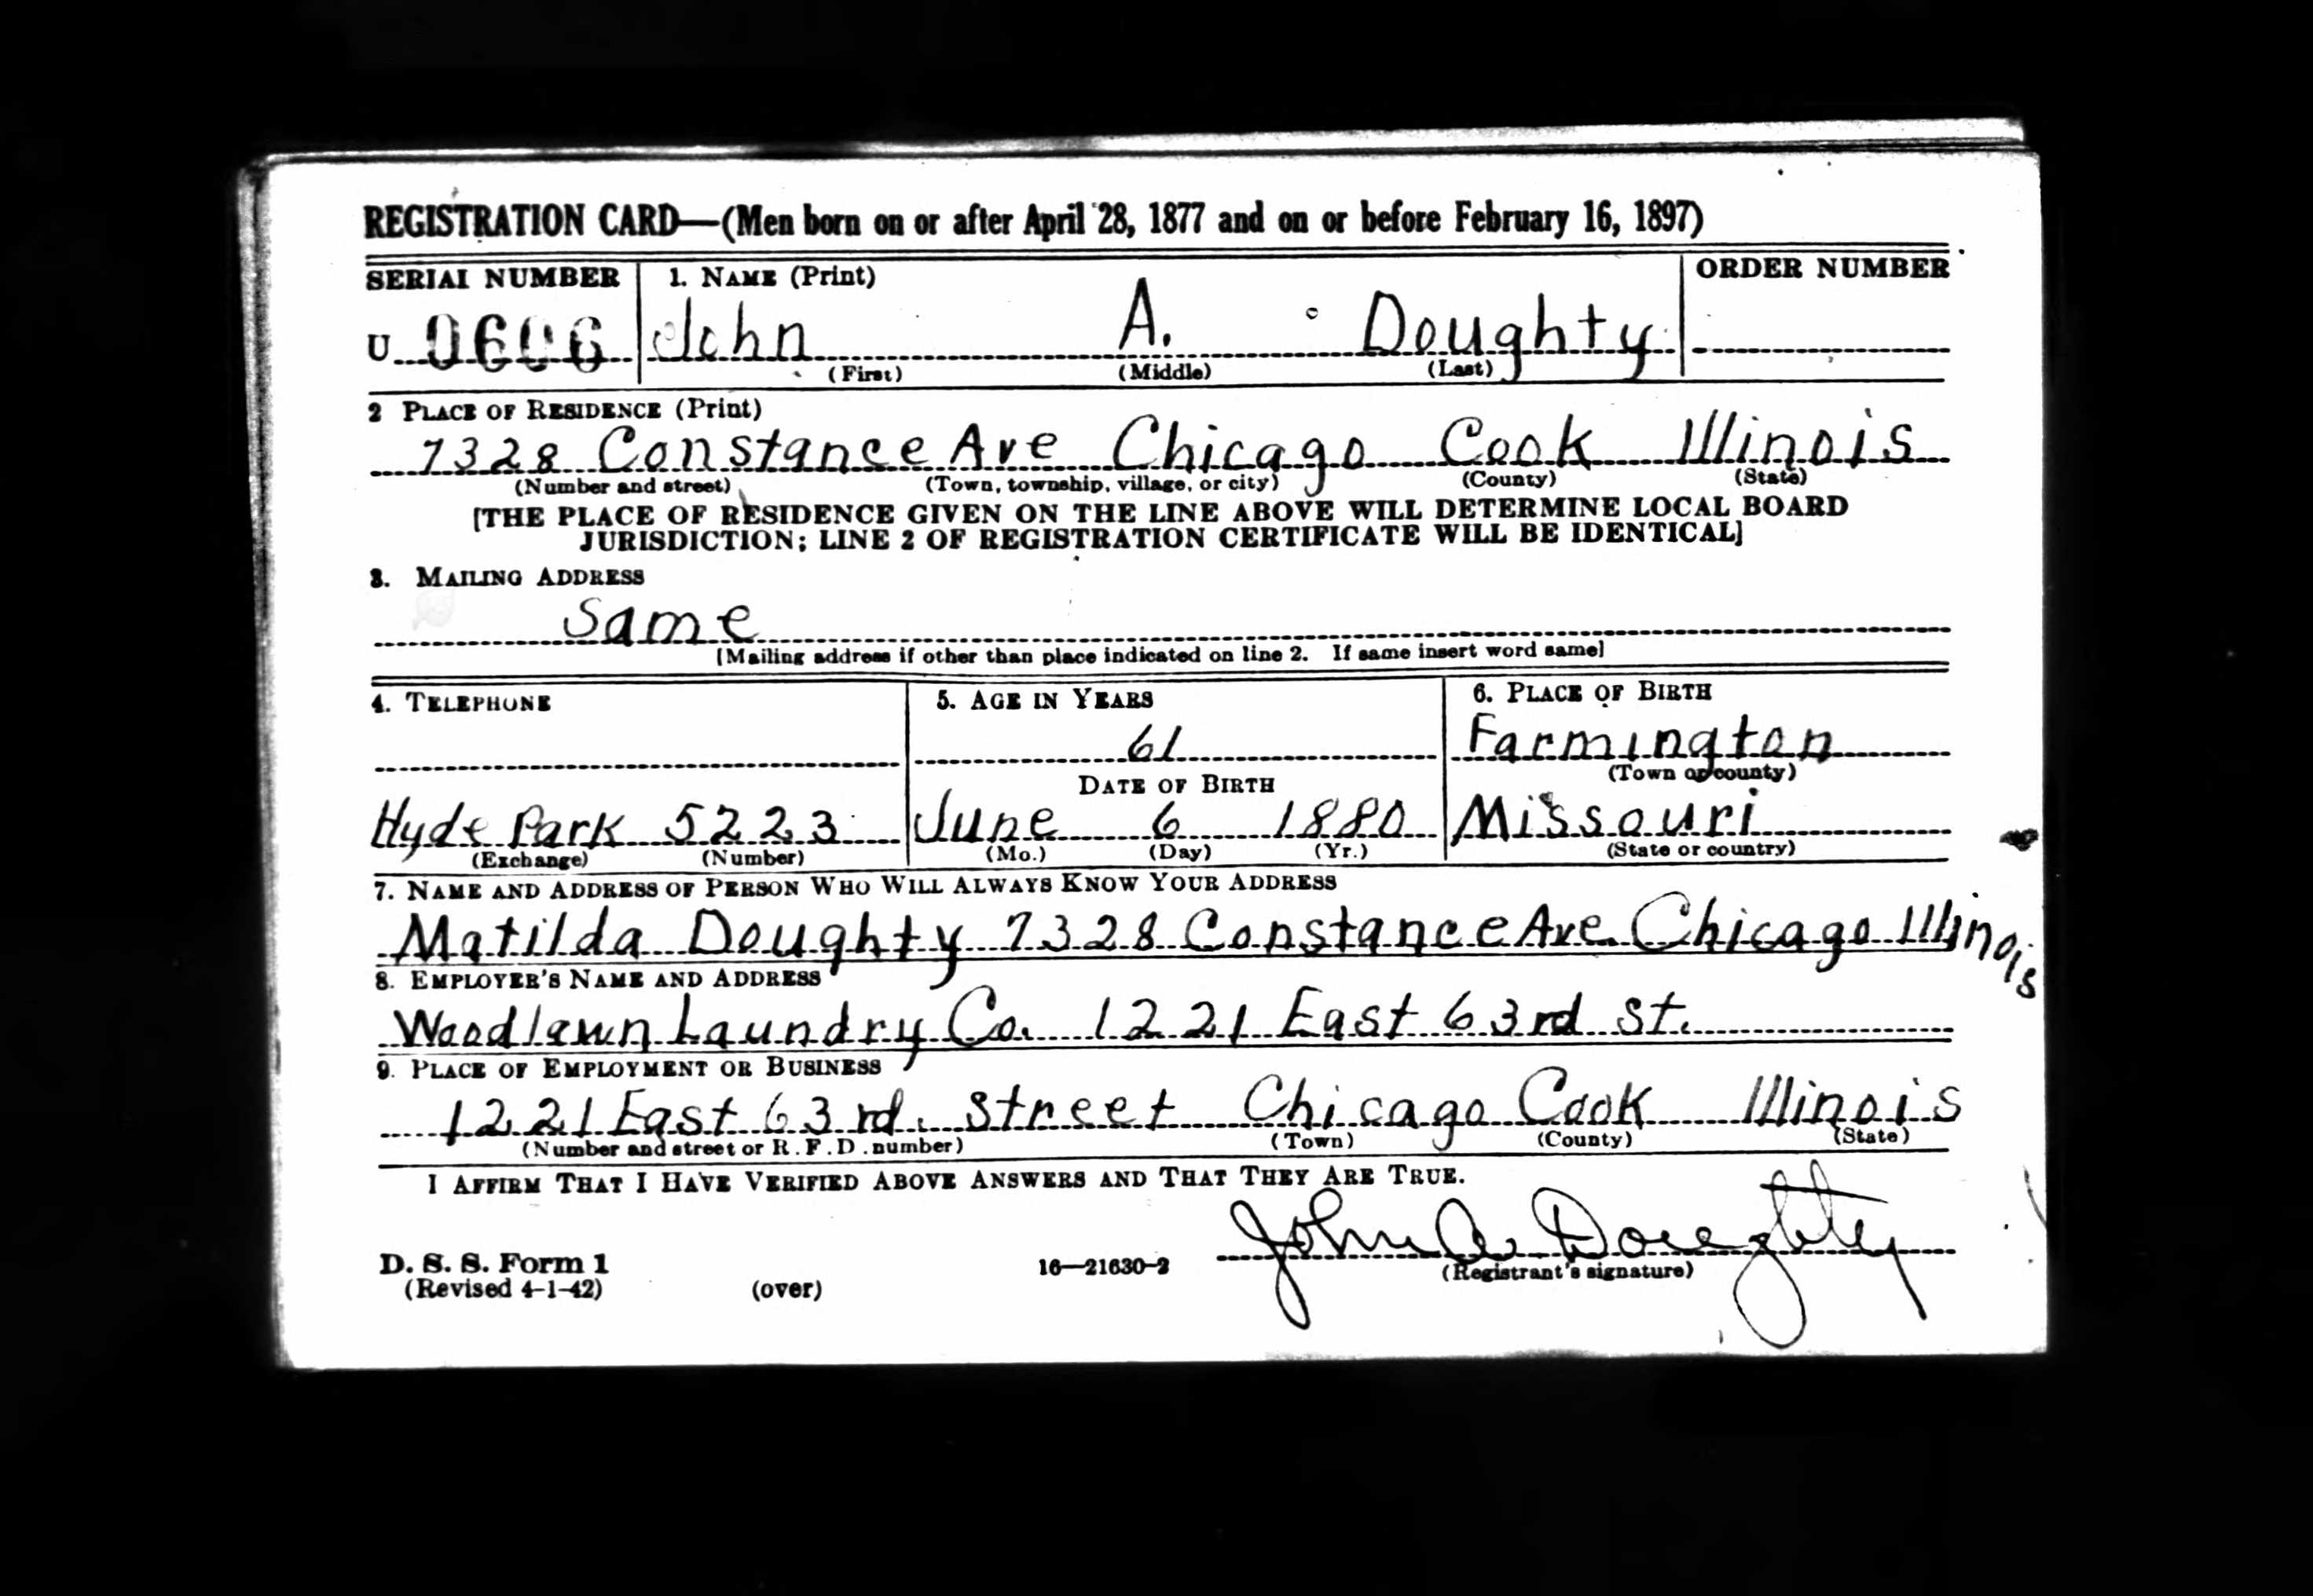 REGISTRATION CARD—(Men born on or after April 28, 1877 and on or before February 16, 1897)
SERIAL NUMBER 1. NAME (Print) ORDER NUMBER
U 0606 John A. Doughty
(First) (Middle) (Last)
2 PLACE OF RESIDENCE (Print)
7328 Constance Ave Chicago Cook Illinois
(Number and street) (Town, township, village, or city) (County) (State)
[THE PLACE OF RESIDENCE GIVEN ON THE LINE ABOVE WILL DETERMINE LOCAL BOARD
JURISDICTION; LINE 2 OF REGISTRATION CERTIFICATE WILL BE IDENTICAL]
3. MAILING ADDRESS
Same
[Mailing address if other than place indicated on line 2. If same insert word same]
4. TELEPHONE 5. AGE IN YEARS 6. PLACE OF BIRTH
61 Farmington
DATE OF BIRTH (Town or county)
Hyde Park 5223 June 6 1880 Missouri
(Exchange) (Number) (Mo.) (Day) (Yr.) (State or country)
7. NAME AND ADDRESS OF PERSON WHO WILL ALWAYS KNOW YOUR ADDRESS
Matilda Doughty 7328 Constance Ave Chicago Illinois
8. EMPLOYER'S NAME AND ADDRESS
Woodlawn Laundry Co. 1221 East 63rd St.
9. PLACE OF EMPLOYMENT OR BUSINESS
1221 East 63rd. Street Chicago Cook Illinois
(Number and street or R. F. D. number) (Town) (County) (State)
I AFFIRM THAT I HAVE VERIFIED ABOVE ANSWERS AND THAT THEY ARE TRUE.
John A. Doughty
D. S. S. Form 1 16—21630-2 (Registrant's signature)
(Revised 4-1-42) (over)